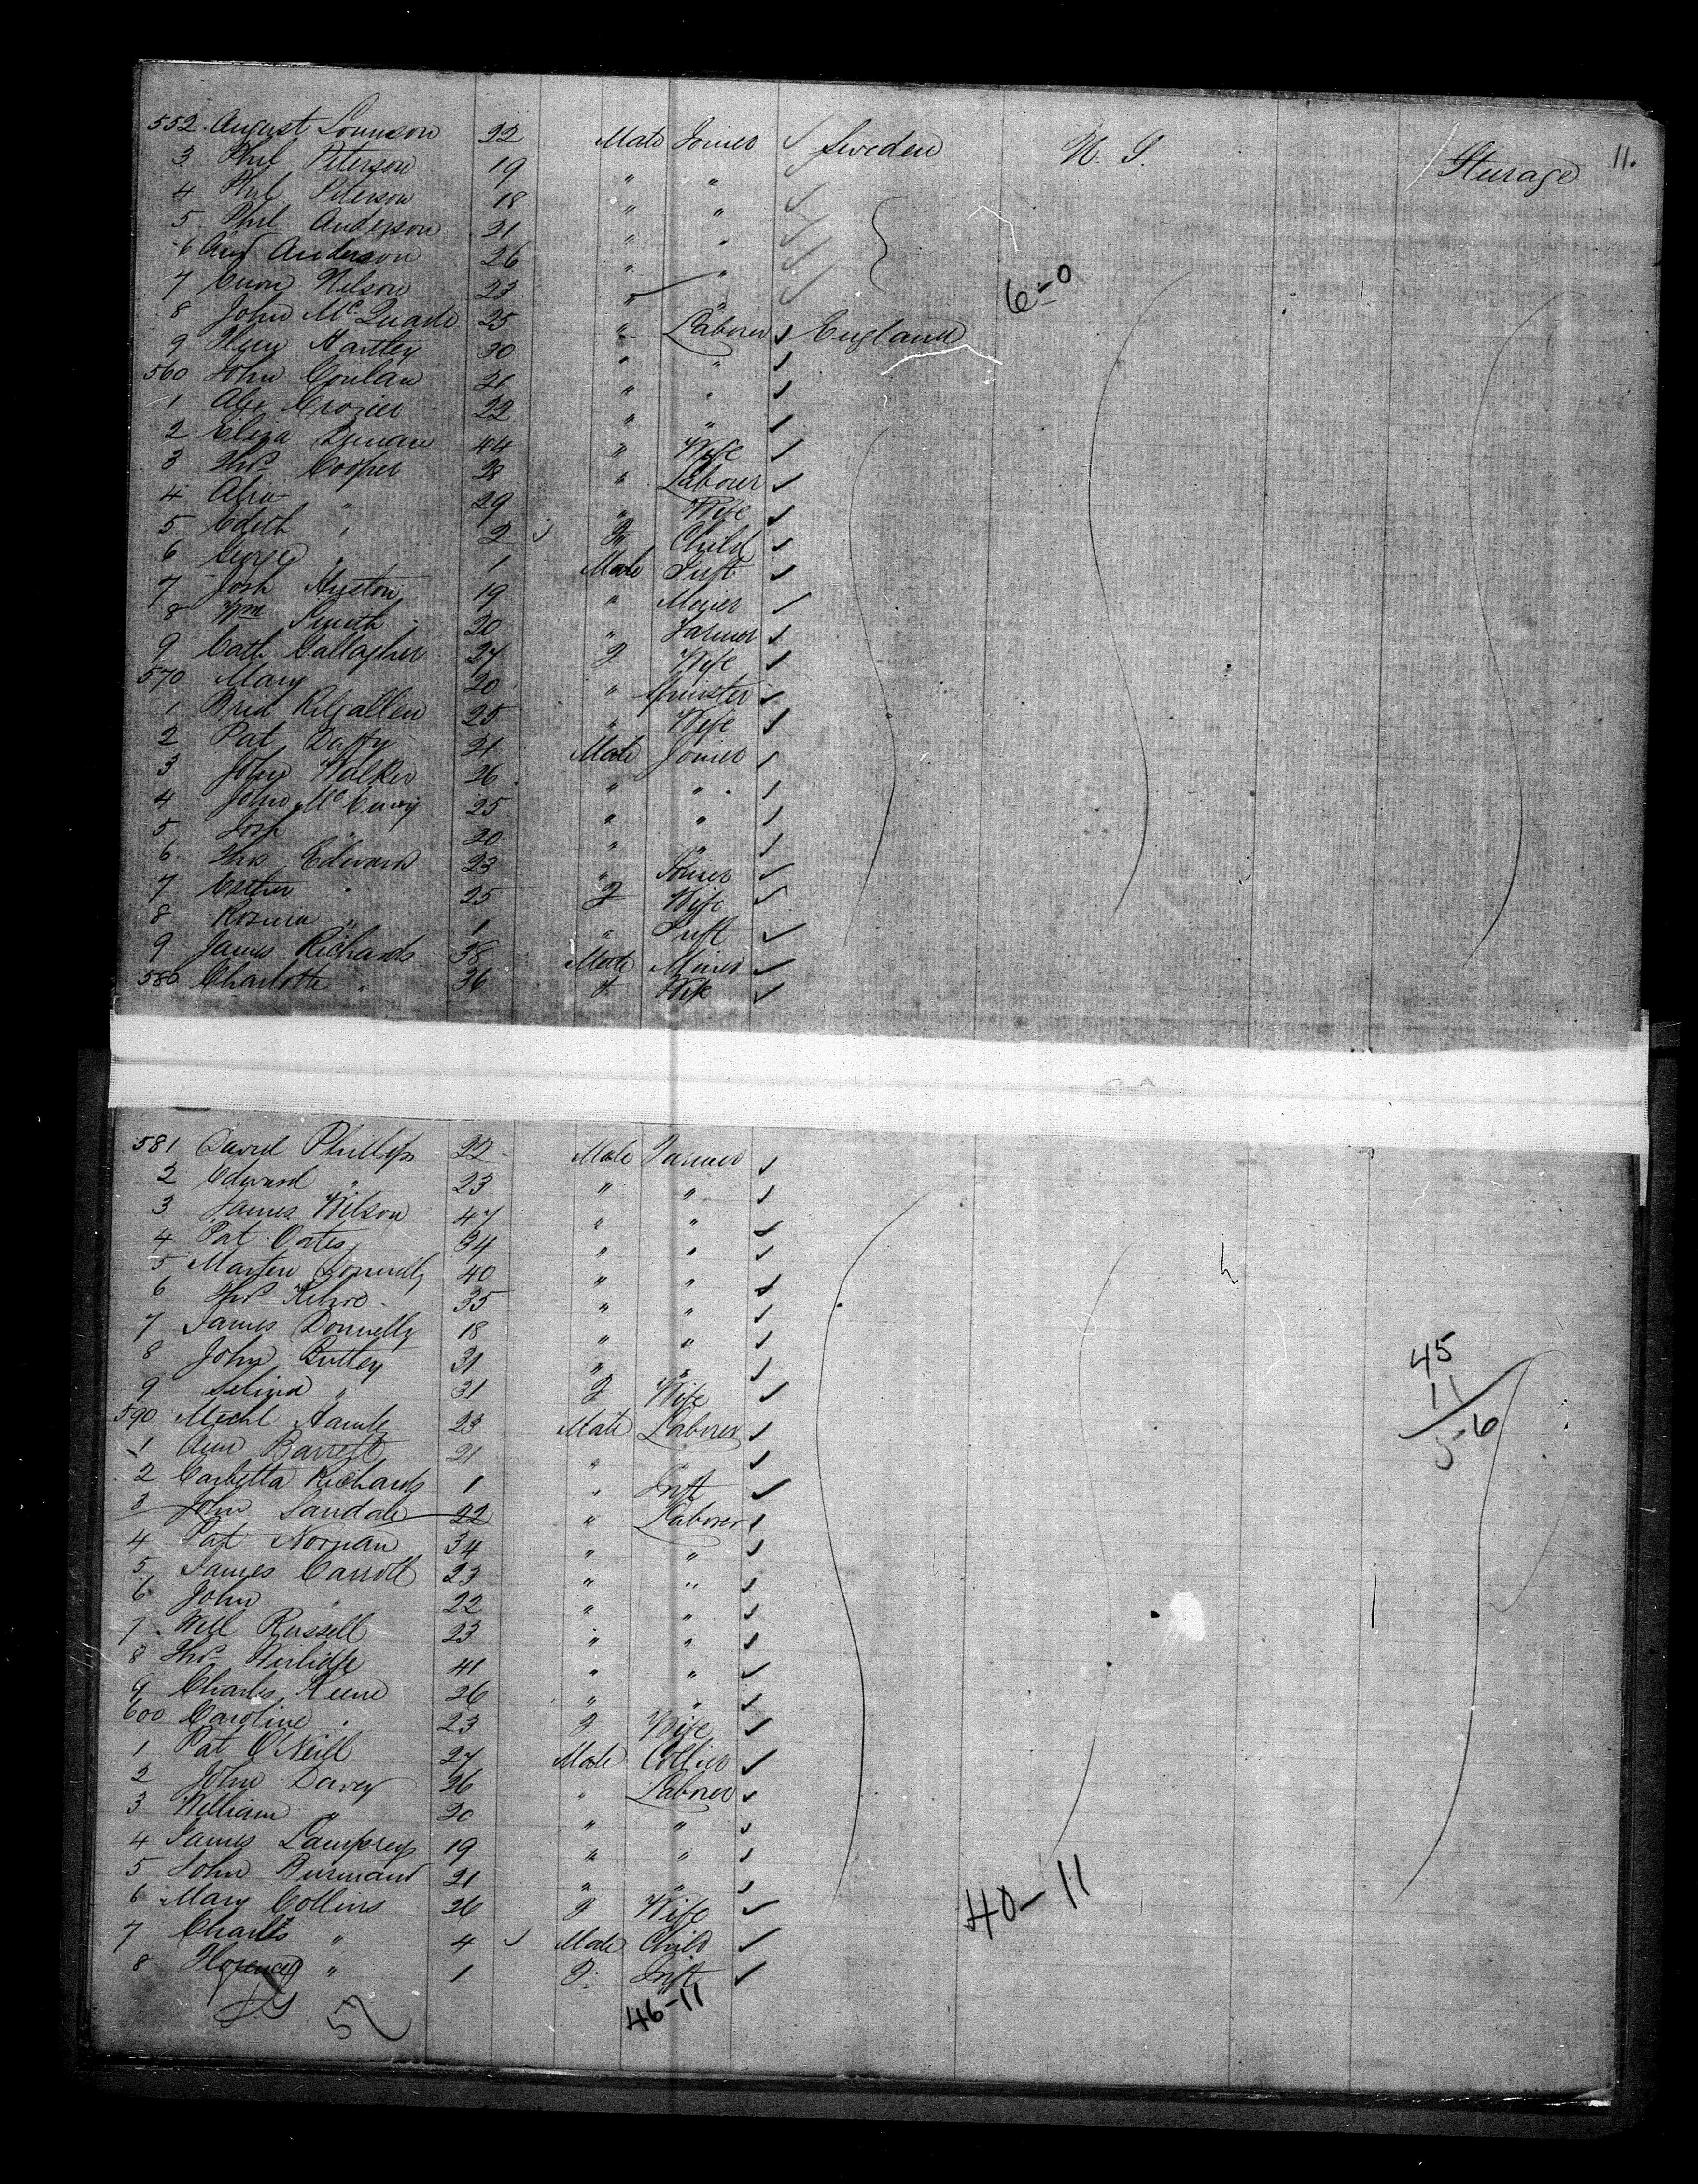 11.
552. August Lonnson 22 Male Joiner ✓ Sweden U. S. Sturage
3 Phil Peterson 19 " " ✓
4 Phil Peterson 18 " " ✓
5 Phil Anderson 31 " " ✓
6 Aug Anderson 26 " " ✓
7 Nelson 23 " " ✓
6-0
8 John Mc Quade 25 " Laborer ✓ England
9 Henry Hartley 30 " " ✓
560 John Conlan 21 " " ✓
1 Alex Crozier 22 " " ✓
2 Eliza 44 " Wife ✓
3 Thos Cooper 28 " Laborer ✓
4 " 29 " Wife ✓
5 Edith " 2 ✓ F Child ✓
6 George " 1 Male Inft ✓
7 Josh Huston 19 " Miner ✓
8 Wm Smith 20 " Farmer ✓
9 Cath Gallagher 27 F Wife ✓
570 Mary 20 " Spinster ✓
1 Brid Kilgallen 25 " Wife ✓
2 Pat Duffy 21 Male Joiner ✓
3 John Walker 26 " " ✓
4 John Mc 25 " " ✓
5 Josh " 20 " " ✓
6 Thos Edwards 23 " Joiner ✓
7 Esther " 25 F Wife ✓
8 Rosina " 1 " Inft ✓
9 James Richards 38 Male Miner ✓
580 Charlotte " 36 F Wife ✓
581 David Phillips 22 Male Farmer ✓
2 Edward " 23 " " ✓
3 James Wilson 47 " " ✓
4 Pat Oates 34 " " ✓
5 Martin Donnelly 40 " " ✓
6 Thos Kehoe 35 " " ✓
7 James Donnelly 18 " " ✓
8 John Rutley 31 " " ✓
45
9 Selina " 31 F Wife ✓
11
590 Michl 23 Male Laborer ✓
56
1 Ann Barrett 21 " " ✓
2 Richards 1 " Inft ✓
3 John Sandale 22 " Laborer ✓
4 Pat Nornan 34 " " ✓
5 James Carroll 23 " " ✓
6 John " 22 " " ✓
7 Will Russell 23 " " ✓
8 Thos 41 " " ✓
9 Charles Keene 26 " " ✓
600 Caroline " 23 F Wife ✓
1 Pat O'Neill 27 Male Collier ✓
2 John Davey 26 " Laborer ✓
3 William " 20 " " ✓
4 James Lamprey 19 " " ✓
5 John 21 " " ✓
40-11
6 Mary Collins 26 F Wife ✓
7 Charles " 4 ✓ Male Child ✓
8 Florence " 1 F. Inft ✓
46-11
57